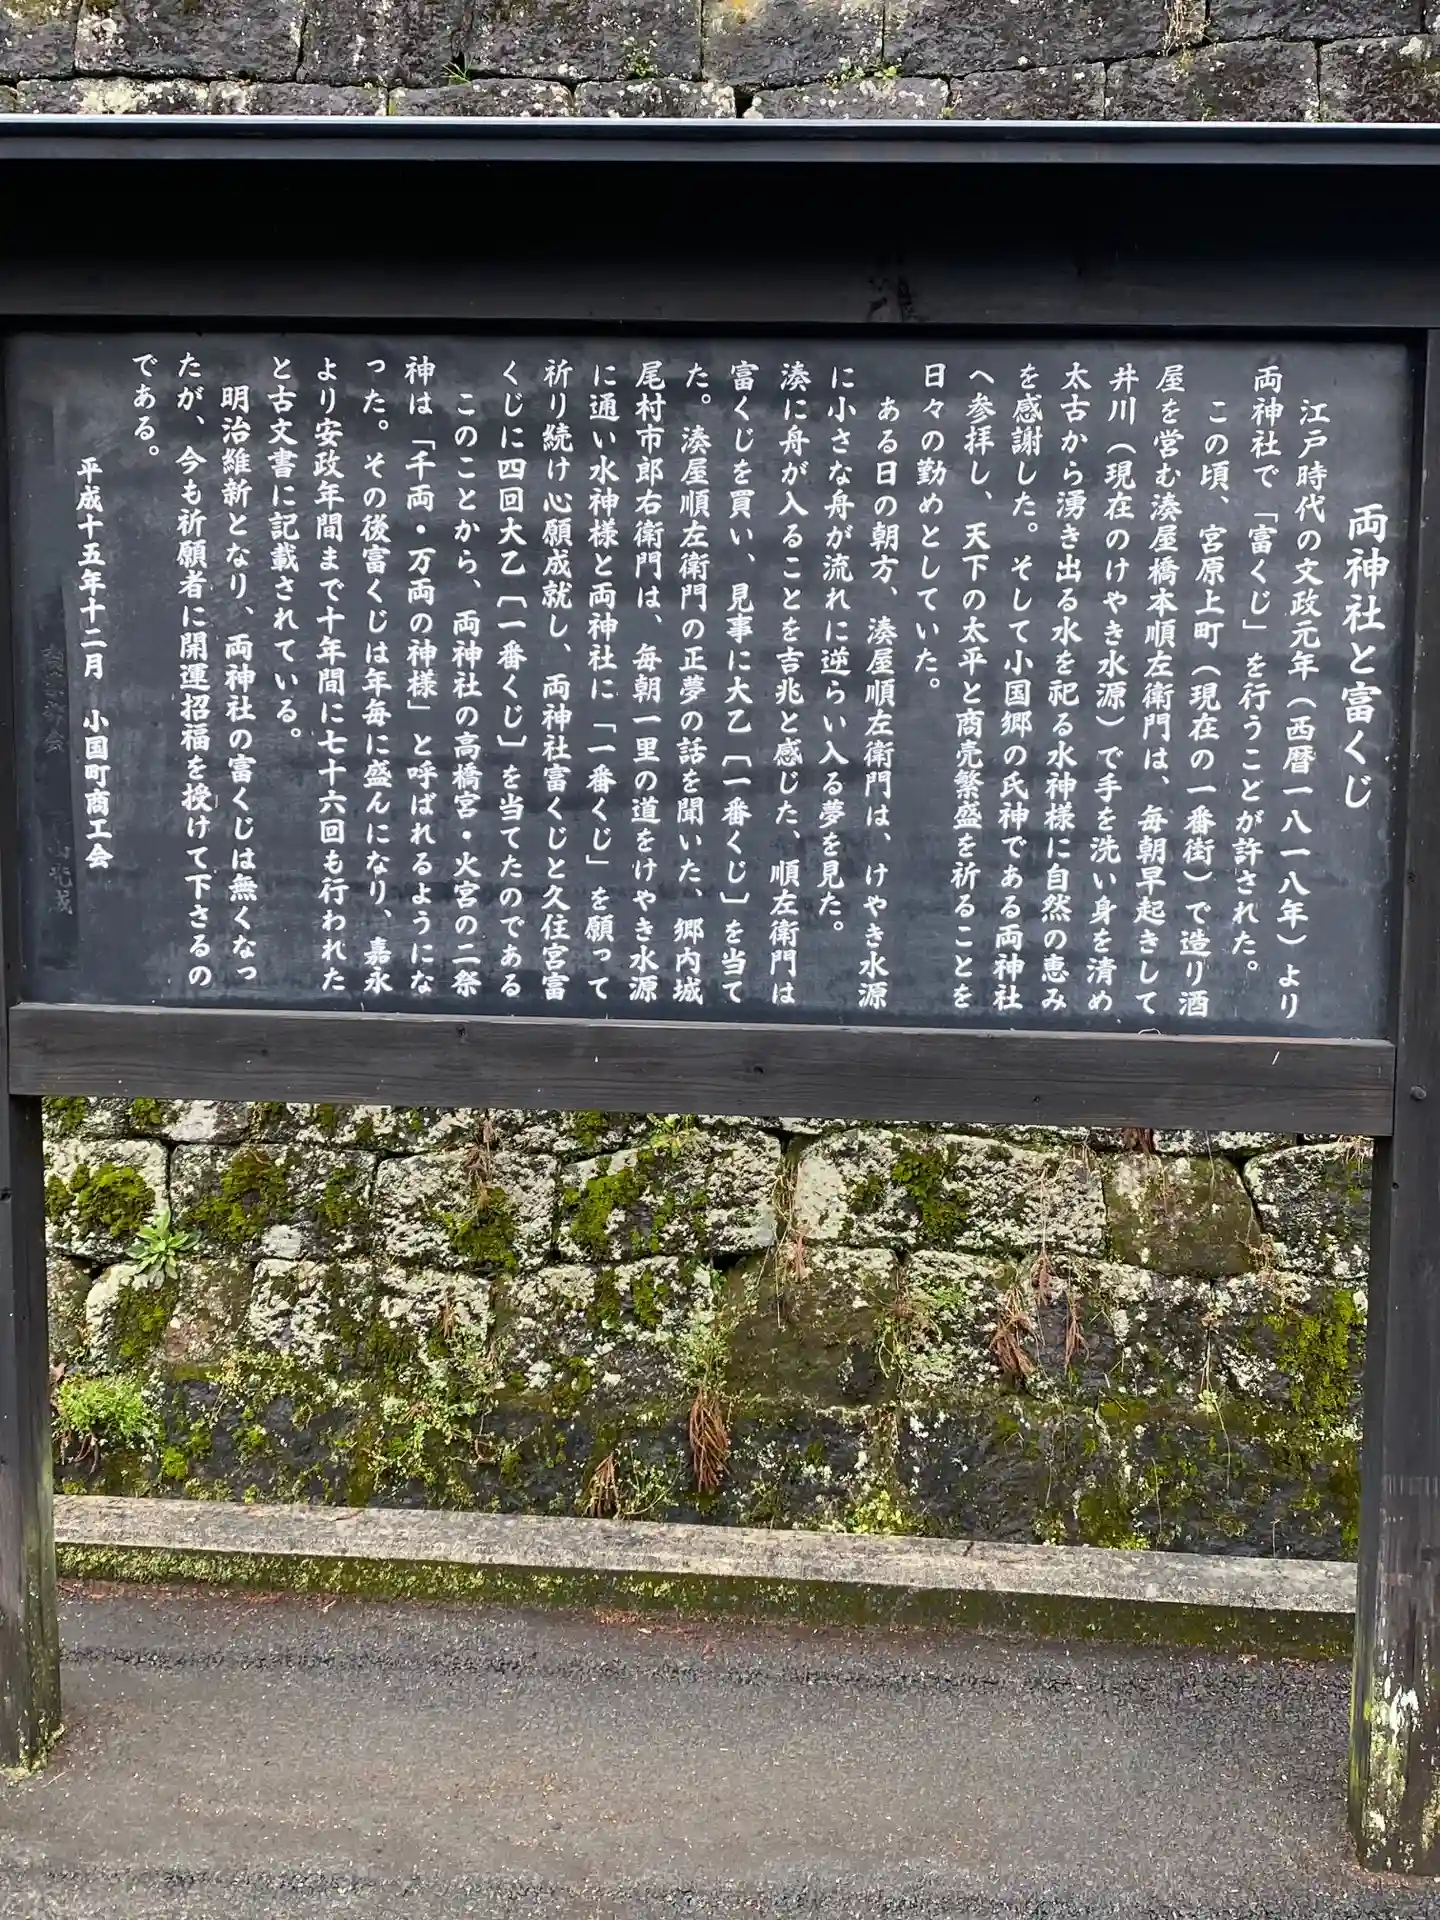 両神社と富くじ
江戸時代の文政元年（西暦一八一八年）より
両神社で「富くじ」を行うことが許された。
この頃、宮原上町（現在の一番街）で造り酒
屋を営む湊屋橋本順左衛門は、毎朝早起きして
井川（現在のけやき水源）で手を洗い身を清め、
太古から湧き出る水を祀る水神様に自然の恵み
を感謝した。そして小国郷の氏神である両神社
へ参拝し、天下の太平と商売繁盛を祈ることを
日々の勤めとしていた。
ある日の朝方、湊屋順左衛門は、けやき水源
に小さな舟が流れに逆らい入る夢を見た。
湊に舟が入ることを吉兆と感じた、順左衛門は
富くじを買い、見事に大乙〔一番くじ〕を当て
た。湊屋順左衛門の正夢の話を聞いた、郷内城
尾村市郎右衛門は、毎朝一里の道をけやき水源
に通い水神様と両神社に「一番くじ」を願って
祈り続け心願成就し、両神社富くじと久住宮富
くじに四回大乙〔一番くじ〕を当てたのである
このことから、両神社の高橋宮・火宮の二祭
神は「千両・万両の神様」と呼ばれるようにな
った。その後富くじは年毎に盛んになり、嘉永
より安政年間まで十年間に七十六回も行われた
と古文書に記載されている。
明治維新となり、両神社の富くじは無くなっ
たが、今も祈願者に開運招福を授けて下さるの
である。
平成十五年十二月　小国町商工会